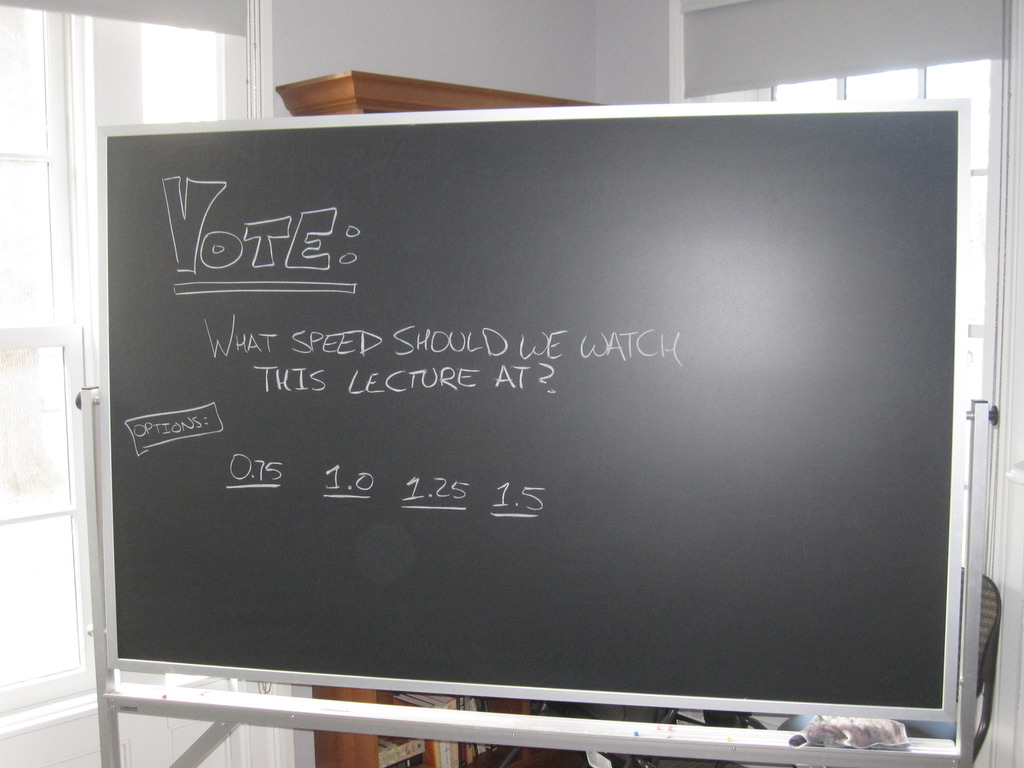 VOTE:
WHAT SPEED SHOULD WE WATCH
THIS LECTURE AT?
OPTIONS:
0.75 1.0 1.25 1.5